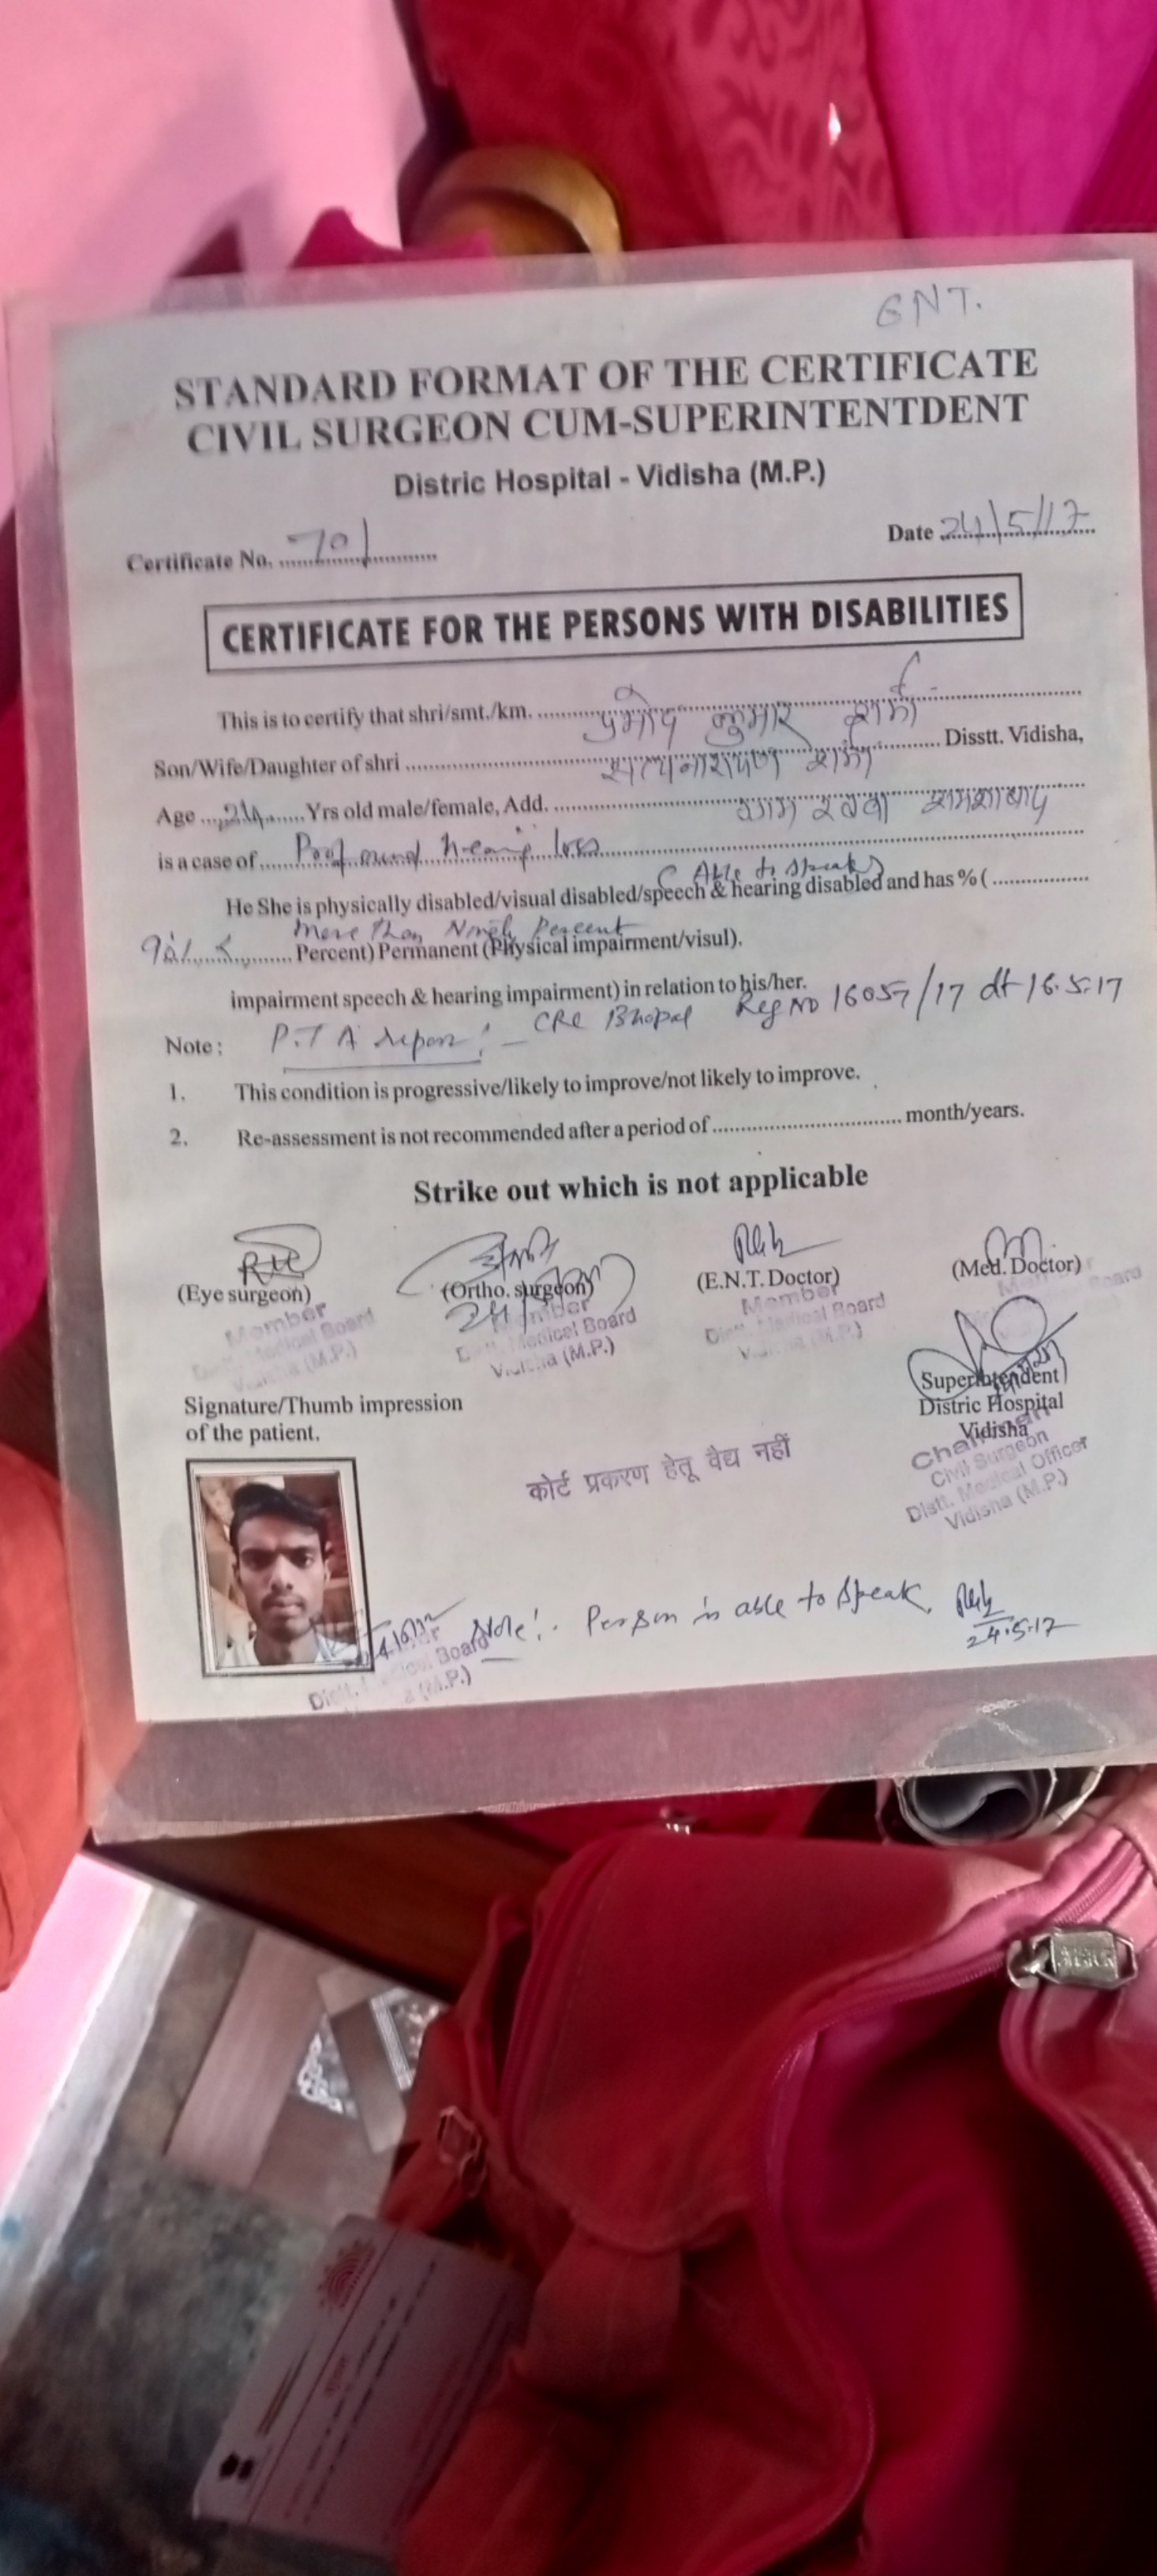 GNT.
STANDARD FORMAT OF THE CERTIFICATE
CIVIL SURGEON CUM-SUPERINTENTDENT
Distric Hospital - Vidisha (M.P.)
Certificate No. 701
Date 24/5/17
CERTIFICATE FOR THE PERSONS WITH DISABILITIES
This is to certify that shri/smt./km. प्रमोद कुमार शर्मा
Son/Wife/Daughter of shri सत्यनारायण शर्मा Disstt. Vidisha,
Age 24 Yrs old male/female, Add. शमशाबाद
is a case of Profound hearing loss
( Able to speak)
He She is physically disabled/visual disabled/speech & hearing disabled and has % (
More Than Ninety Percent
Percent) Permanent (Physical impairment/visul).
impairment speech & hearing impairment) in relation to his/her.
Note : P.T A report :- CRC Bhopal Reg NO 16057/17 dt 16.5.17
1. This condition is progressive/likely to improve/not likely to improve.
2. Re-assessment is not recommended after a period of month/years.
Strike out which is not applicable
(Eye surgeon) (Ortho. surgeon) (E.N.T. Doctor) (Med. Doctor)
Member
Distt. Medical Board
Vidisha (M.P.)
Member
Distt. Medical Board
Vidisha (M.P.)
Member
Distt. Medical Board
Vidisha (M.P.)
Superintendent
Distric Hospital
Vidisha
Chairman
Civil Surgeon
Distt. Medical Officer
Vidisha (M.P.)
Signature/Thumb impression
of the patient.
कोर्ट प्रकरण हेतू वैद्य नहीं
Note:- Person is able to speak.
24.5.17
Distt. Medical Board
(M.P.)